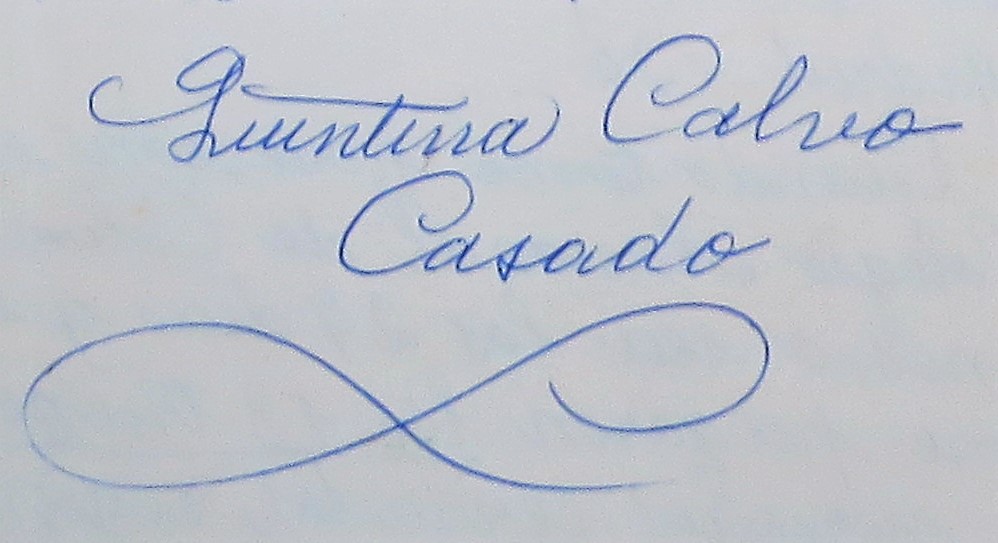 Quintina Calvo
Casado